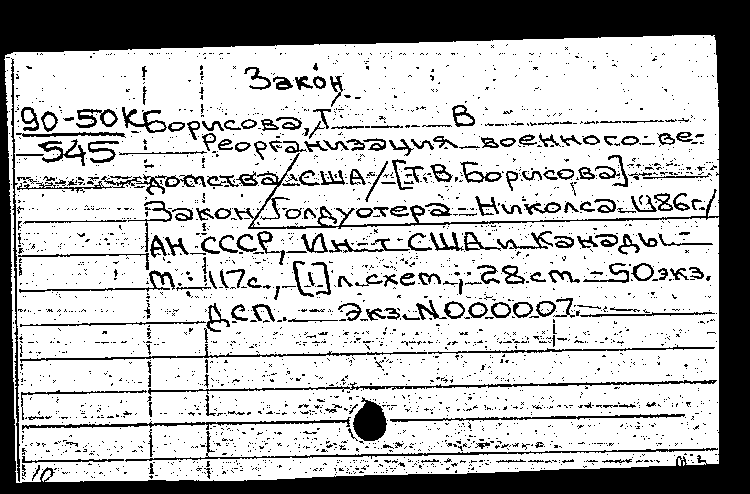 Закон
90-50К Борисова, Т В
545 Реорганизация военного ве-
домства США / [Т.В.Борисова].
Закон Голдуотера - Николса 1986г. /
АН СССР, Ин-т США и Канады -
м.: 117с., [1] л. схем ; 28 см. - 50 экз.
ДСП. Экз. N000007.
10